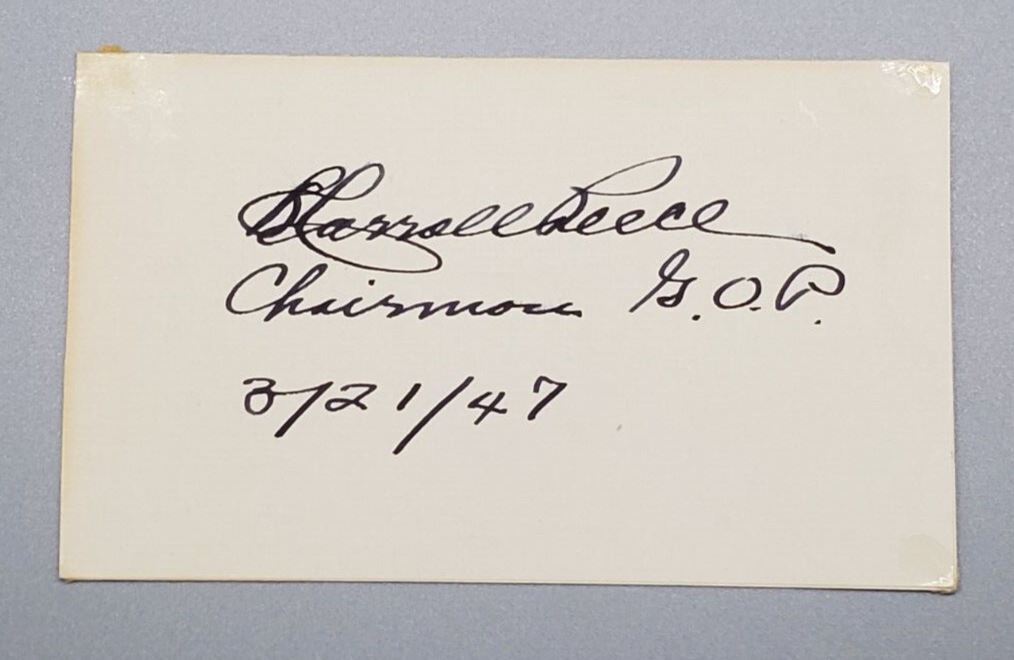 B Carroll Reece
Chairman G.O.P.
3/21/47